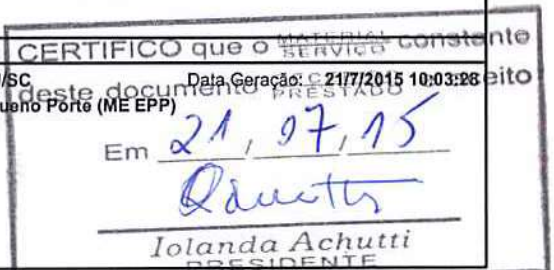 CERTIFICO que o MATERIAL SERVIÇO constante
/SC Data Geração: 21/7/2015 10:03:28
deste documento PRESTADO eito
ueno Porte (ME EPP)
Em 21, 07, 15
Iolanda Achutti
PRESIDENTE